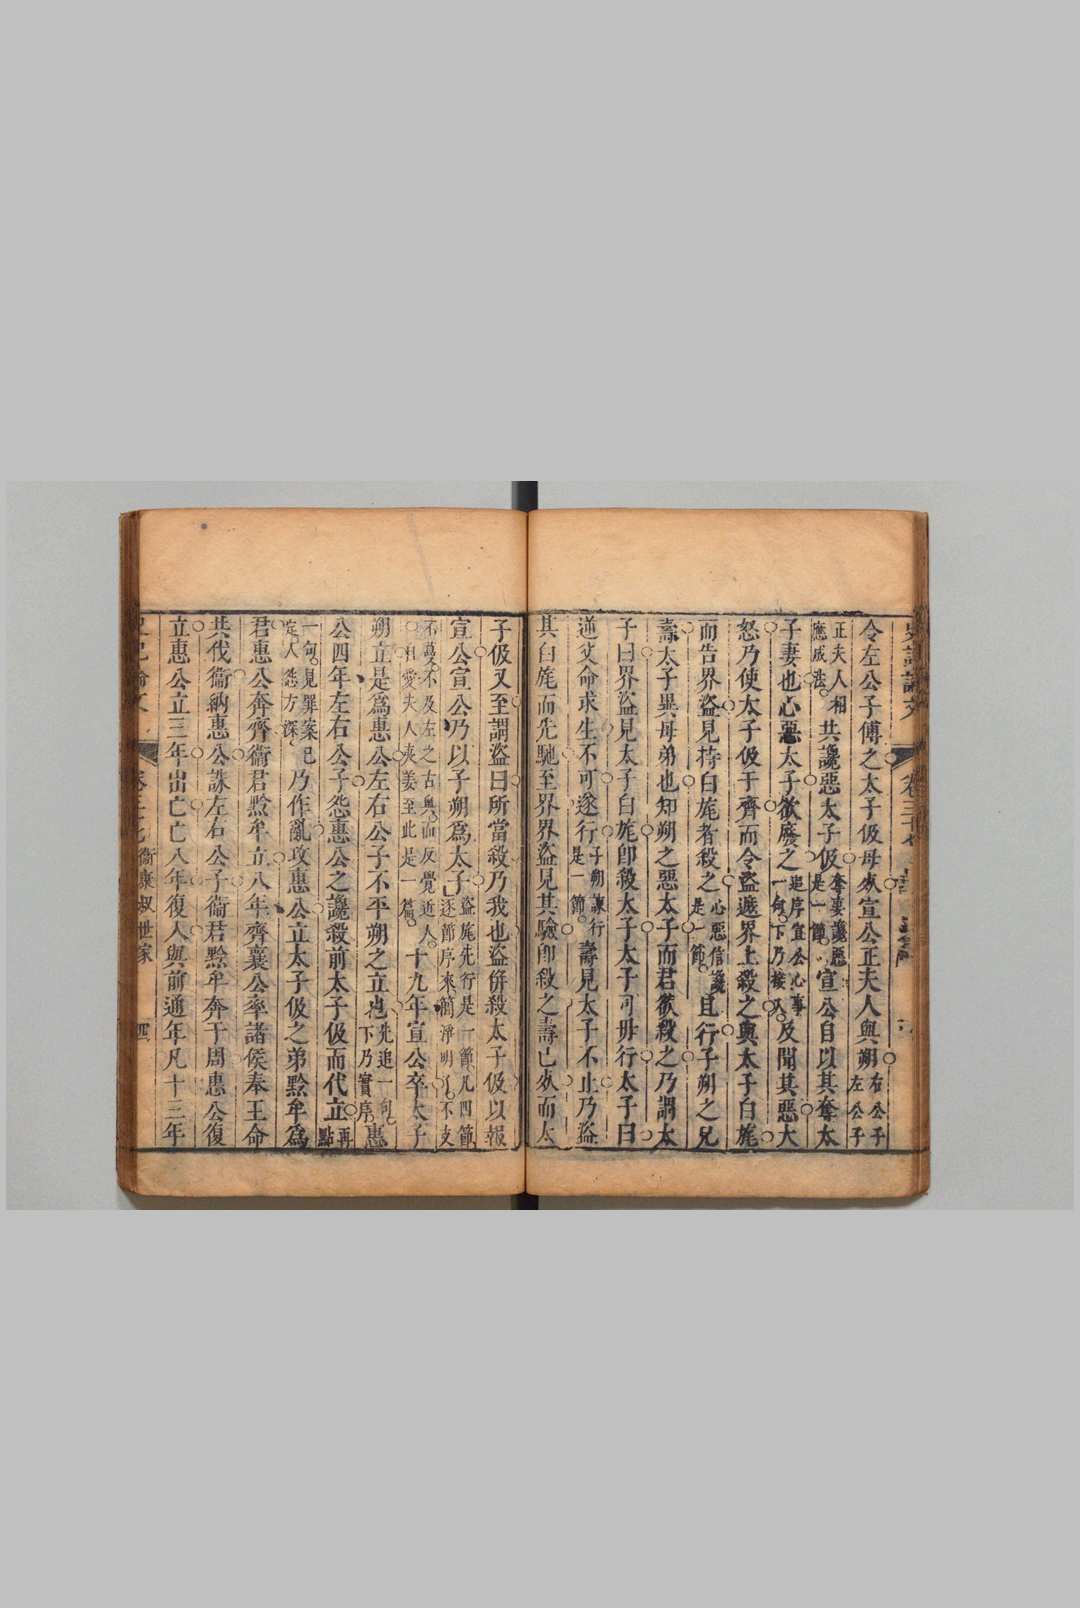 令左公子傅之太子伋母死宣公正夫人與朔右公子左公子
正夫人相應成法共讒惡太子伋奪妻讒惡是一節宣公自以其奪太
子妻也心惡太子欲廢之追序宣公心事一句下乃接入及聞其惡大
怒乃使太子伋于齊而令盜遮界上殺之與太子白旄
而告界盜見持白旄者殺之心惡信讒是一節且行子朔之兄
壽太子異母弟也知朔之惡太子而君欲殺之乃謂太
子曰界盜見太子白旄卽殺太子太子可毋行太子曰
逆父命求生不可遂行子朔諫行是一節壽見太子不止乃盜
其白旄而先馳至界界盜見其驗卽殺之壽已死而太
子伋又至謂盜曰所當殺乃我也盜併殺太子伋以報
宣公宣公乃以子朔爲太子盜旄先行是一節凡四節逐節序來簡淨明
不蔓不及左之古奧而反覺近人自愛夫人夷姜至此是一篇十九年宣公卒太子
朔立是爲惠公左右公子不平朔之立也先追一句下乃實序惠
公四年左右公子怨惠公之讒殺前太子伋而代立再點
一句見罪案已定人怨方深乃作亂攻惠公立太子伋之弟黔牟爲
君惠公奔齊衞君黔牟立八年齊襄公率諸侯奉王命
共伐衞納惠公誅左右公子衞君黔牟奔于周惠公復
立惠公立三年出亡亡八年復入與前通年凡十三年
衞康叔世家 四